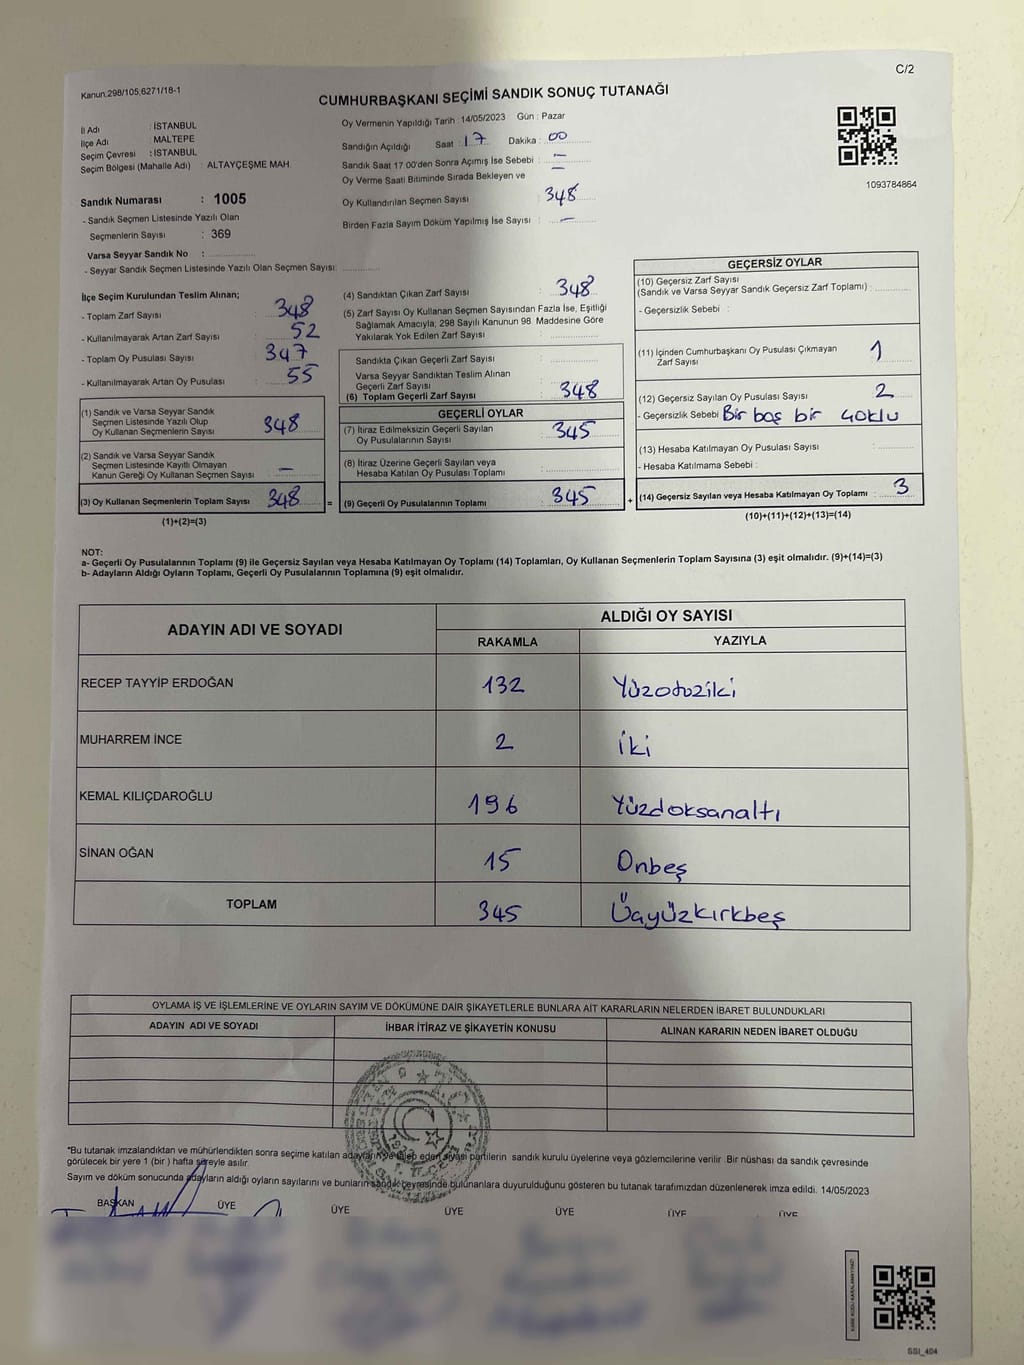 C/2
Kanun.298/105;6271/18-1
CUMHURBAŞKANI SEÇİMİ SANDIK SONUÇ TUTANAĞI
İl Adı : İSTANBUL
İlçe Adı : MALTEPE
Seçim Çevresi : İSTANBUL
Seçim Bölgesi (Mahalle Adı) : ALTAYÇEŞME MAH.
Oy Vermenin Yapıldığı Tarih : 14/05/2023 Gün : Pazar
Sandığın Açıldığı Saat : 17 Dakika : 00
Sandık Saat 17.00'den Sonra Açımış İse Sebebi : —
Oy Verme Saati Bitiminde Sırada Bekleyen ve : —
Oy Kullandırılan Seçmen Sayısı : 348
Birden Fazla Sayım Döküm Yapılmış İse Sayısı : —
1093784864
Sandık Numarası : 1005
- Sandık Seçmen Listesinde Yazılı Olan
Seçmenlerin Sayısı : 369
Varsa Seyyar Sandık No :
- Seyyar Sandık Seçmen Listesinde Yazılı Olan Seçmen Sayısı:
İlçe Seçim Kurulundan Teslim Alınan;
- Toplam Zarf Sayısı : 348
- Kullanılmayarak Artan Zarf Sayısı : 52
- Toplam Oy Pusulası Sayısı : 347
- Kullanılmayarak Artan Oy Pusulası : 55
(1) Sandık ve Varsa Seyyar Sandık
Seçmen Listesinde Yazılı Olup
Oy Kullanan Seçmenlerin Sayısı : 348
(2) Sandık ve Varsa Seyyar Sandık
Seçmen Listesinde Kayıtlı Olmayan
Kanun Gereği Oy Kullanan Seçmen Sayısı : —
(3) Oy Kullanan Seçmenlerin Toplam Sayısı : 348 =
(1)+(2)=(3)
(4) Sandıktan Çıkan Zarf Sayısı : 348
(5) Zarf Sayısı Oy Kullanan Seçmen Sayısından Fazla İse, Eşitliği
Sağlamak Amacıyla, 298 Sayılı Kanunun 98. Maddesine Göre
Yakılarak Yok Edilen Zarf Sayısı :
Sandıkta Çıkan Geçerli Zarf Sayısı :
Varsa Seyyar Sandıktan Teslim Alınan
Geçerli Zarf Sayısı :
(6) Toplam Geçerli Zarf Sayısı : 348
GEÇERLİ OYLAR
(7) İtiraz Edilmeksizin Geçerli Sayılan
Oy Pusulalarının Sayısı : 345
(8) İtiraz Üzerine Geçerli Sayılan veya
Hesaba Katılan Oy Pusulası Toplamı :
(9) Geçerli Oy Pusulalarının Toplamı : 345 +
GEÇERSİZ OYLAR
(10) Geçersiz Zarf Sayısı
(Sandık ve Varsa Seyyar Sandık Geçersiz Zarf Toplamı) :
- Geçersizlik Sebebi :
(11) İçinden Cumhurbaşkanı Oy Pusulası Çıkmayan
Zarf Sayısı : 1
(12) Geçersiz Sayılan Oy Pusulası Sayısı : 2
- Geçersizlik Sebebi Bir boş bir çoklu
(13) Hesaba Katılmayan Oy Pusulası Sayısı :
- Hesaba Katılmama Sebebi :
(14) Geçersiz Sayılan veya Hesaba Katılmayan Oy Toplamı : 3
(10)+(11)+(12)+(13)=(14)
NOT:
a- Geçerli Oy Pusulalarının Toplamı (9) ile Geçersiz Sayılan veya Hesaba Katılmayan Oy Toplamı (14) Toplamları, Oy Kullanan Seçmenlerin Toplam Sayısına (3) eşit olmalıdır. (9)+(14)=(3)
b- Adayların Aldığı Oyların Toplamı, Geçerli Oy Pusulalarının Toplamına (9) eşit olmalıdır.
ADAYIN ADI VE SOYADI ALDIĞI OY SAYISI
RAKAMLA YAZIYLA
RECEP TAYYİP ERDOĞAN 132 Yüzotuziki
MUHARREM İNCE 2 İki
KEMAL KILIÇDAROĞLU 196 Yüzdoksanaltı
SİNAN OĞAN 15 Onbeş
TOPLAM 345 Üçyüzkırkbeş
OYLAMA İŞ VE İŞLEMLERİNE VE OYLARIN SAYIM VE DÖKÜMÜNE DAİR ŞİKAYETLERLE BUNLARA AİT KARARLARIN NELERDEN İBARET BULUNDUKLARI
ADAYIN ADI VE SOYADI İHBAR İTİRAZ VE ŞİKAYETİN KONUSU ALINAN KARARIN NEDEN İBARET OLDUĞU
T.C.
*Bu tutanak imzalandıktan ve mühürlendikten sonra seçime katılan adayların ve talep eden siyasi partilerin sandık kurulu üyelerine veya gözlemcilerine verilir. Bir nüshası da sandık çevresinde
görülecek bir yere 1 (bir ) hafta süreyle asılır.
Sayım ve döküm sonucunda adayların aldığı oyların sayılarını ve bunların sandık çevresinde bulunanlara duyurulduğunu gösteren bu tutanak tarafımızdan düzenlenerek imza edildi. 14/05/2023
BAŞKAN ÜYE ÜYE ÜYE ÜYE ÜYE ÜYE
SSI_404